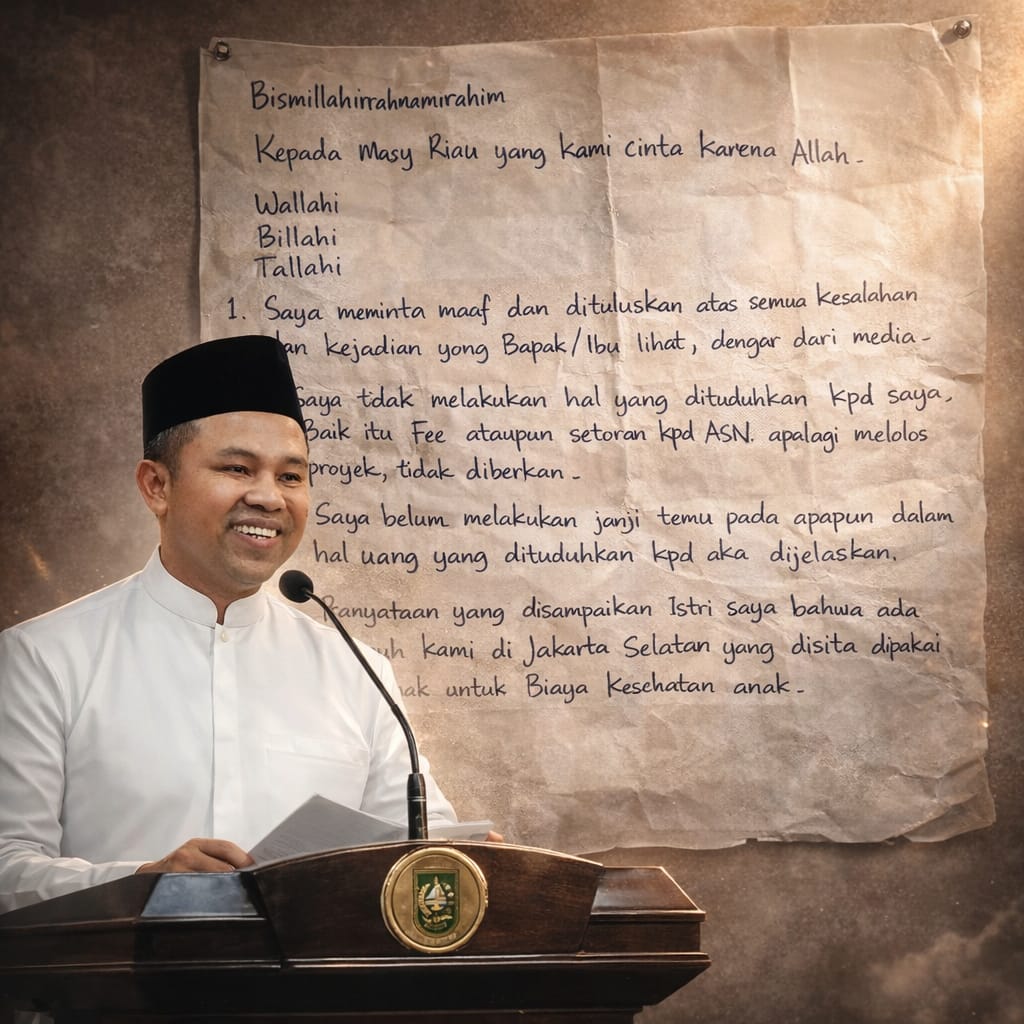 Bismillahirrahnamirahim
Kepada Masy Riau yang kami cinta karena Allah -
Wallahi
Billahi
Tallahi
1. Saya meminta maaf dan dituluskan atas semua kesalahan
dan kejadian yong Bapak/Ibu lihat, dengar dari media -
Saya tdak melakukan hal yang dituduhkan kpd saya,
Baik itu Fee ataupun setoran kpd ASN. apalagi melolos
proyek, tidak diberkan -
Saya belum melakukan janji temu pada apapun dalam
hal uang yang dituduhkan kpd aka dijelaskan.
Pranyataan yang disampaikan Istri saya bahwa ada
kami di Jakarta Selatan yang disita dipakai
untuk Biaya Kesehatan anak -